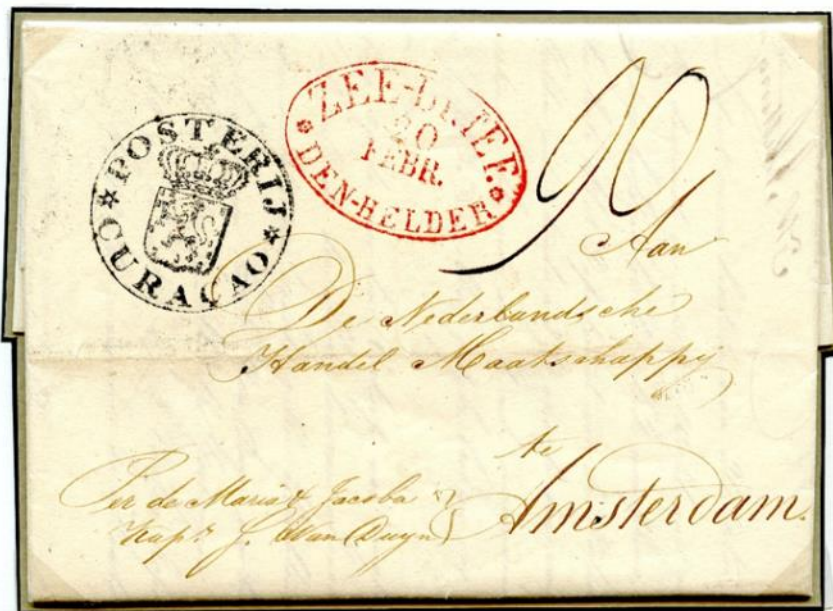 POSTERIJ
CURAÇAO
ZEE-BRIEF.
20
FEBR.
DEN-HELDER
90
Aan
De Nederlandsche
Handel Maatschappij
te
Amsterdam.
Per de Maria & Jacoba
Kapt. J. Van Duyn